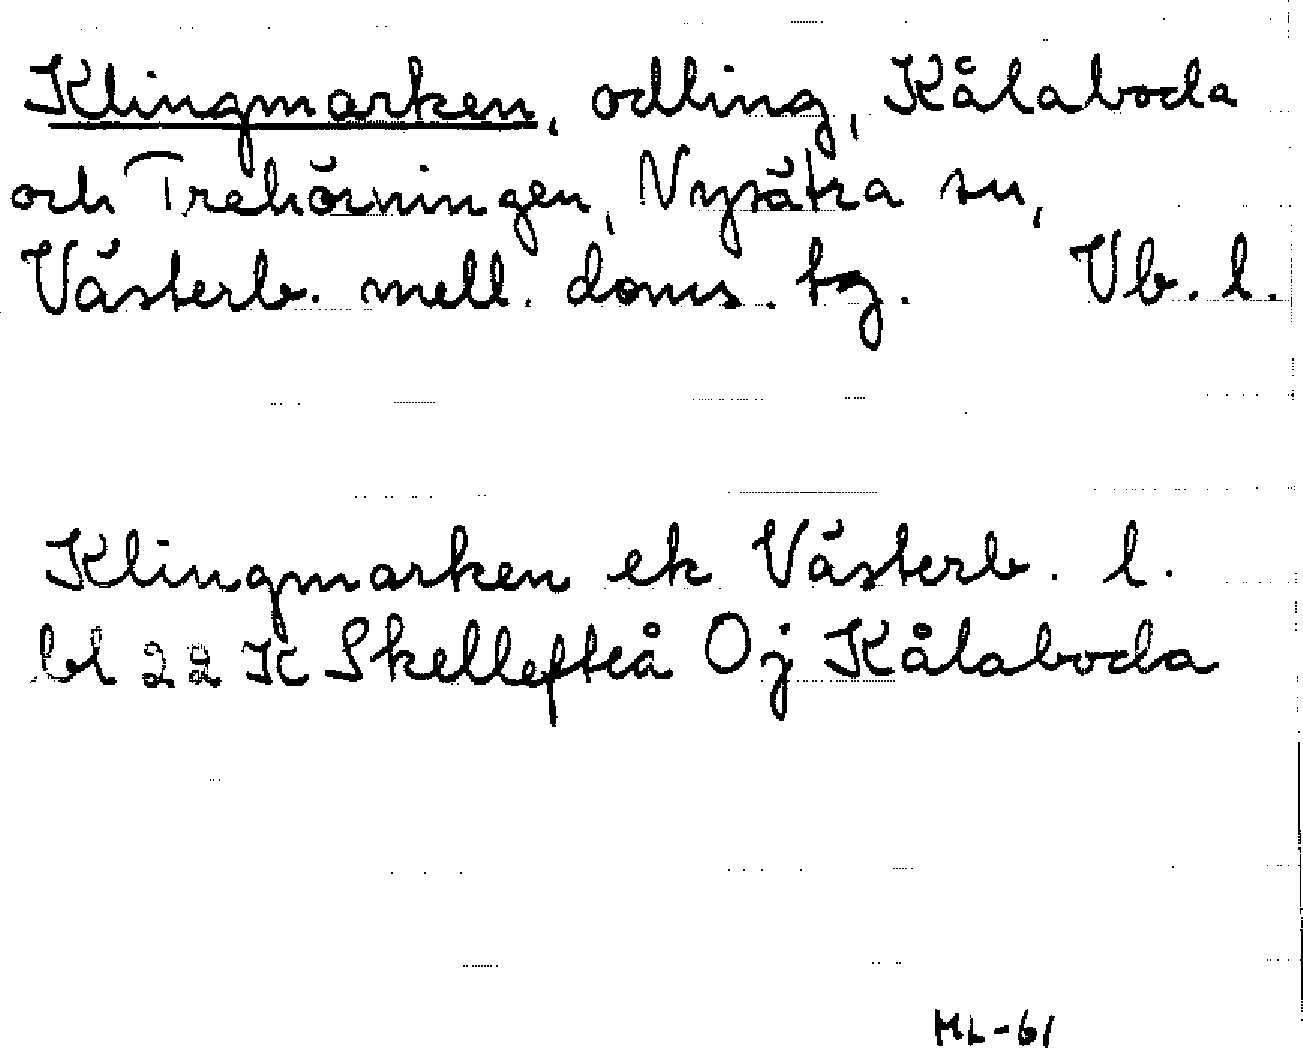 Klingmarken, odling, Kålaboda
och Trehörningen, Nysätra sn,
Västerb. mell. doms. tg. Vb. l.
Klingmarken ek Västerb. l.
bl 22 K Skellefteå Oj Kålaboda
ML-61